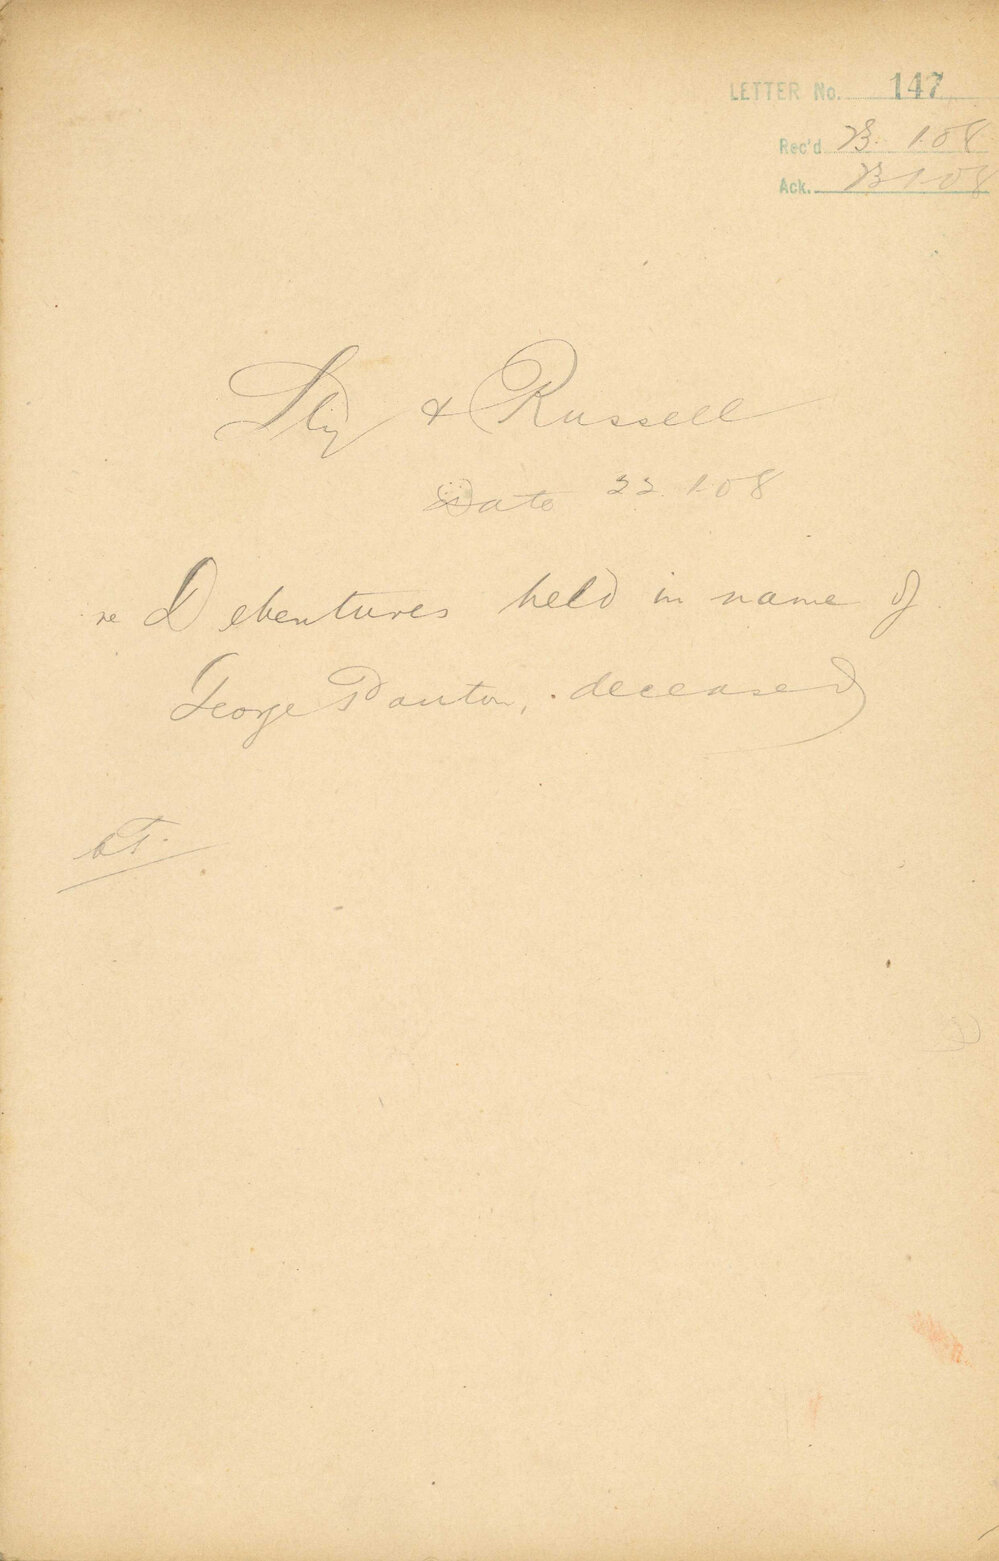 LETTER No. 147
Rec'd 23. 1.08
Ack. 23 1-08
Sly & Russell
Date 22. 1.08
re Debentures held in name of
George Panton, deceased